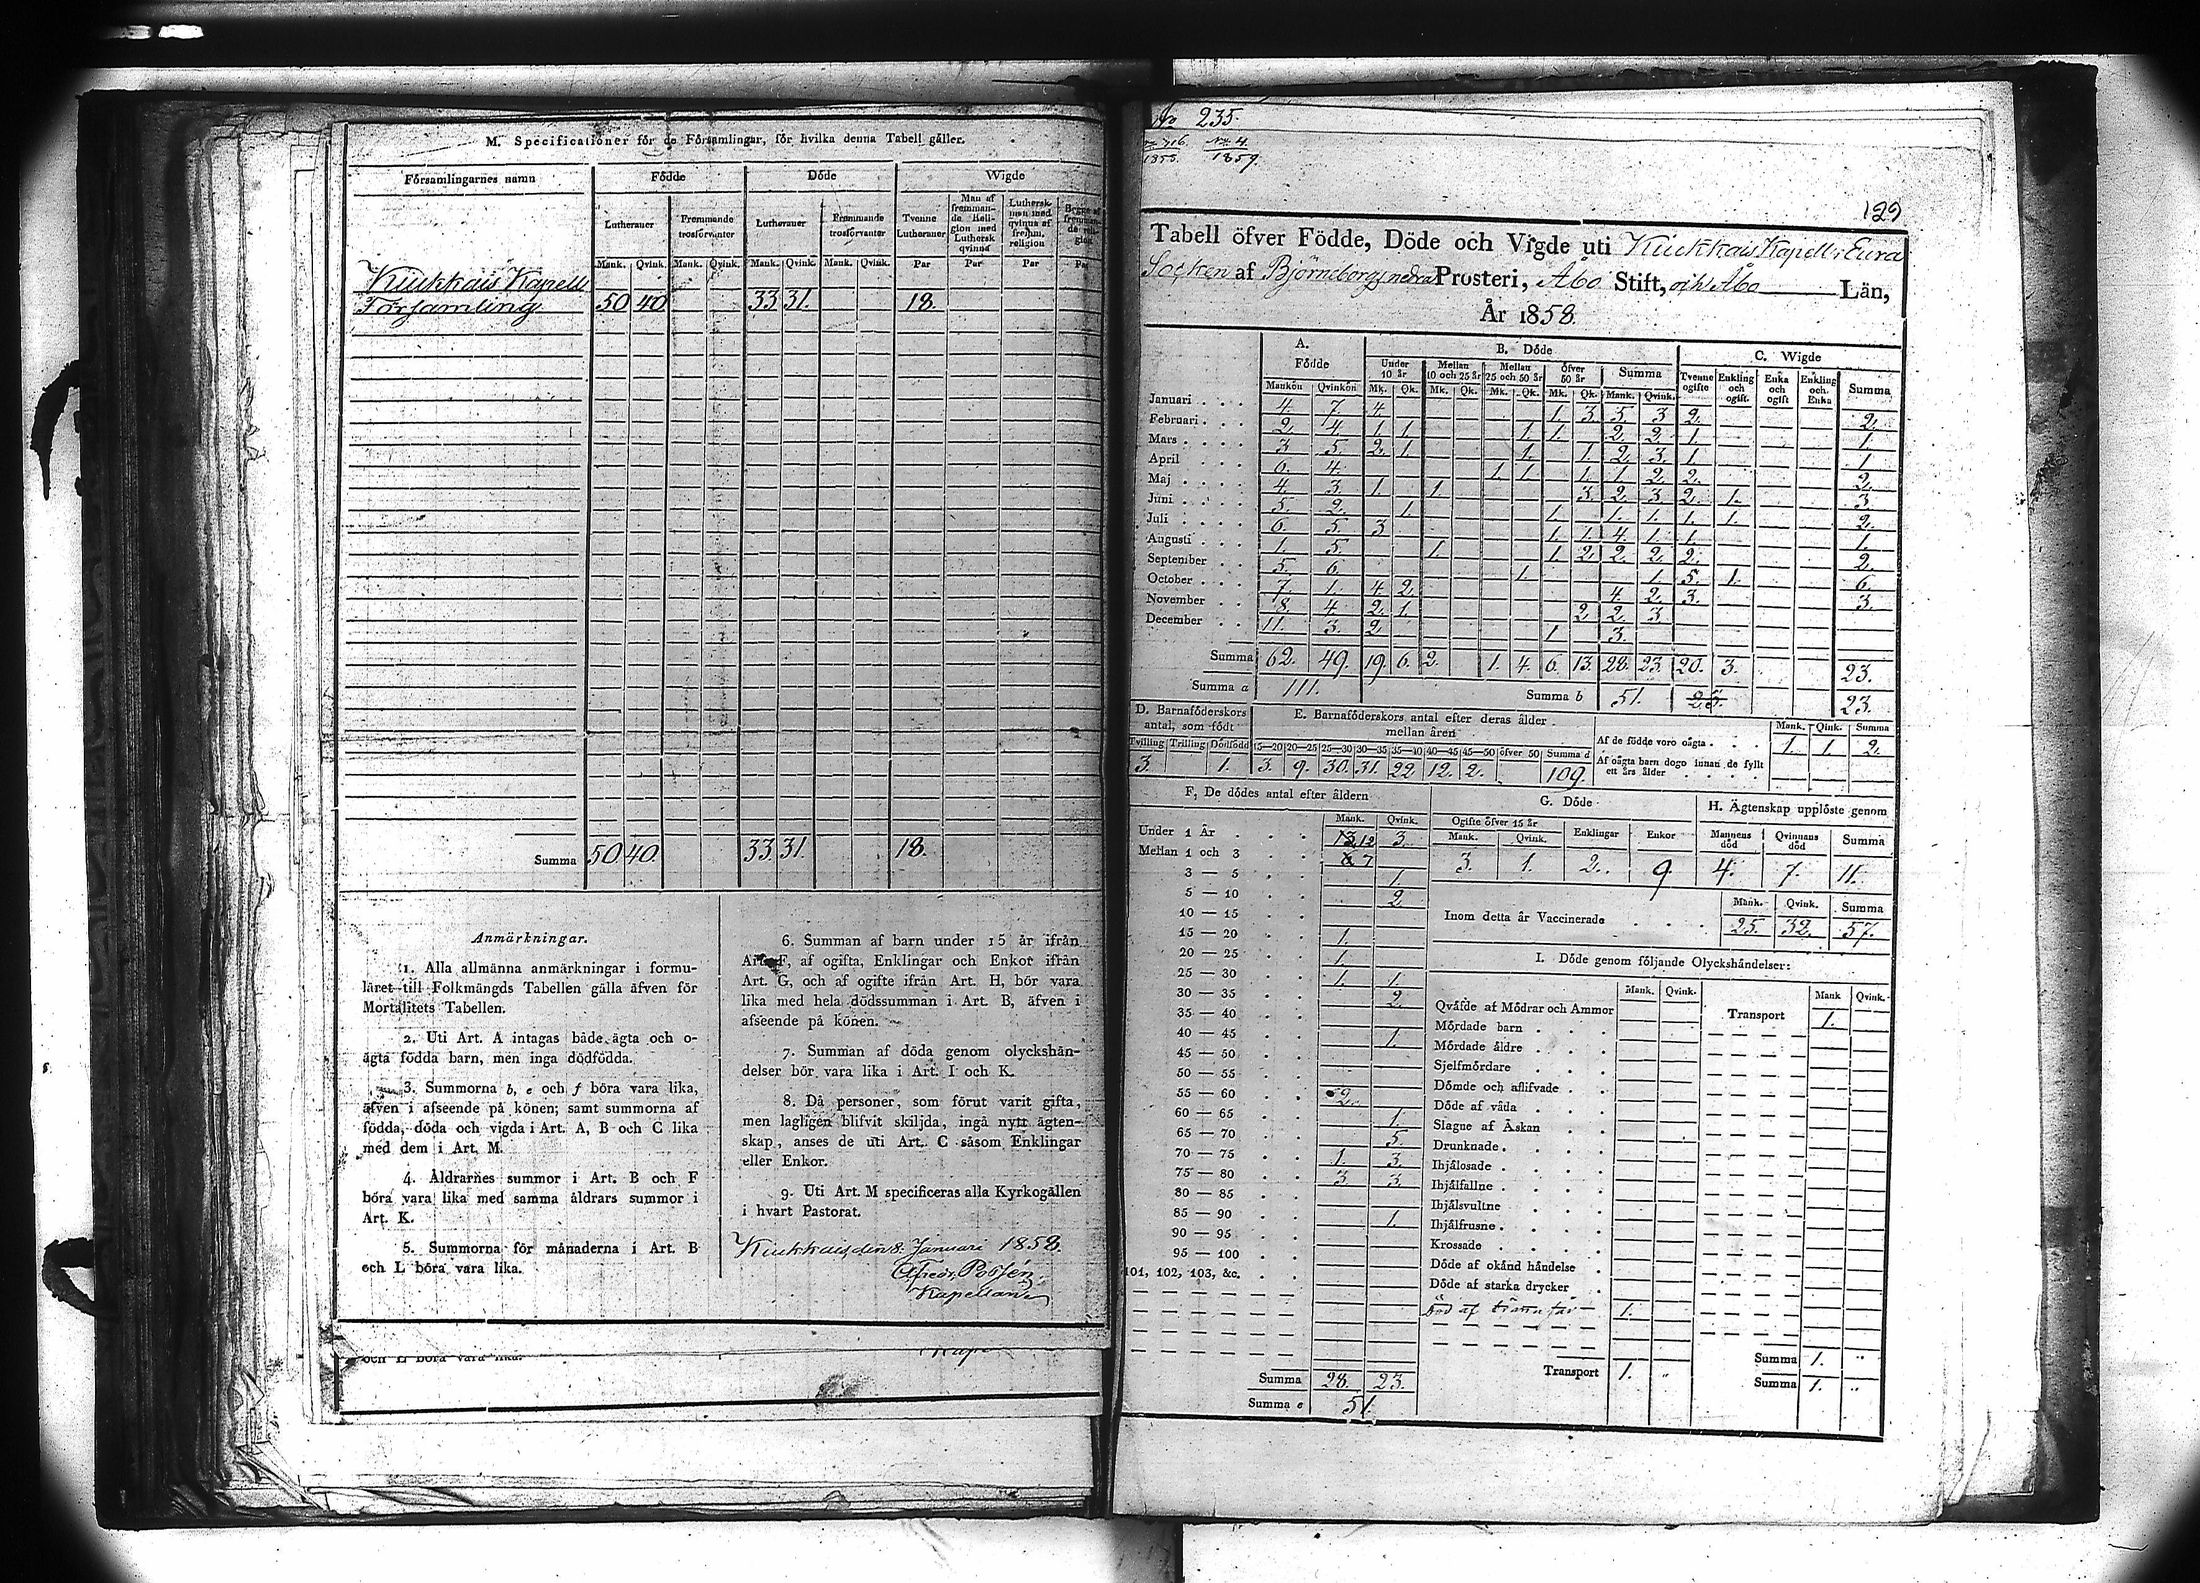 M. Specificationer för de Församlingar, för hvilka denna Tabell gäller.
Församlingarnes namn Födde Döde Wigde
Lutheraner Fremmande trosförvanter Lutheraner Fremmande trosförvanter Tvenne Lutheraner Man af fremmande Religion med Luthersk qvinna Luthersk man med qvinna af fremm. religion Begge af fremmande religion
Mank. Qvink. Mank. Qvink. Mank. Qvink. Mank. Qvink. Par Par Par Par
Kiukkais Kapell
Församling 50 40 33 31 18.
Summa 50 40. 33. 31. 18.
Anmärkningar.
1. Alla allmänna anmärkningar i formu-
läret till Folkmängds Tabellen gälla äfven för
Mortalitets Tabellen.
2. Uti Art. A intagas både ägta och o-
ägta födda barn, men inga dödfödda.
3. Summorna b, e och f böra vara lika,
äfven i afseende på könen; samt summorna af
födda, döda och vigda i Art. A, B och C lika
med dem i Art. M.
4. Åldrarnes summor i Art. B och F
böra vara lika med samma åldrars summor i
Art. K.
5. Summorna för månaderna i Art. B
och L böra vara lika.
6. Summan af barn under 15 år ifrån
Art. F, af ogifta, Enklingar och Enkor ifrån
Art. G, och af ogifte ifrån Art. H, bör vara
lika med hela dödssumman i Art. B, äfven i
afseende på könen.
7. Summan af döda genom olyckshän-
delser bör vara lika i Art. I och K.
8. Då personer, som förut varit gifta,
men lagligen blifvit skiljda, ingå nytt ägten-
skap, anses de uti Art. C såsom Enklingar
eller Enkor.
9. Uti Art. M specificeras alla Kyrkogällen
i hvart Pastorat.
Kiukkais den 8. Januari 1858.
Kapellan
och L böra vara lika.
No 235.
1859.
129
Tabell öfver Födde, Döde och Vigde uti Kiukkais Kapell i Eura
Socken af Björneborgs nedra Prosteri, Åbo Stift, och Åbo Län,
År 1858.
A. Födde B. Döde C. Wigde
Under 10 år Mellan 10 och 25 år Mellan 25 och 50 år Öfver 50 år Summa Tvenne ogifte Enkling och ogift. Enka och ogift Enkling och Enka Summa
Mankön Qvinkön Mk. Qk. Mk. Qk. Mk. Qk. Mk. Qk. Mank. Qvink.
Januari 4. 7. 4. 1. 3. 5. 3 2. 2.
Februari 2. 4. 1. 1. 1. 1. 2. 2. 1. 1.
Mars 3 5. 2. 1 1. 1. 2. 3. 1 1
April 6. 4. 1. 1. 1. 1. 2. 2. 2.
Maj 4. 3. 1. 1. 3. 2. 3. 2. 1. 3.
Juni 5. 2. 1. 1. 1. 1. 1. 1. 2.
Juli 6. 5. 3 1. 1. 4. 1. 1. 1.
Augusti 1. 5. 1. 1. 2. 2. 2. 2. 2.
September 5. 6. 1. 1. 5. 1. 6.
October 7. 1. 4 2. 4. 2. 3. 3.
November 8. 4 2. 1. 2 2. 3
December 11. 3. 2. 1. 3.
Summa 62. 49. 19. 6. 2. 1. 4. 6. 13. 28. 23. 20. 3. 23.
Summa a 111. Summa b 51. 23.
D. Barnaföderskors antal, som födt E. Barnaföderskors antal efter deras ålder mellan åren Mank. Qink. Summa
Tvilling Trilling Dödfödd 15—20 20—25 25—30 30—35 35—40 40—45 45—50 öfver 50 Summa d Af de födde voro oägta 1. 1. 2.
3. 1. 3. 9. 30. 31. 22 12. 2. 109. Af oägta barn dogo innan de fyllt ett års ålder
F. De dödes antal efter åldern
Mank. Qvink.
Under 1 År 13 12 3.
Mellan 1 och 3 7
3 — 5 1.
5 — 10 2.
10 — 15
15 — 20 1.
20 — 25 1.
25 — 30 1. 1.
30 — 35 2.
35 — 40
40 — 45 1.
45 — 50
50 — 55
55 — 60 2.
60 — 65 1.
65 — 70 5.
70 — 75 1. 3.
75 — 80 3 3.
80 — 85
85 — 90 1.
90 — 95
95 — 100
101, 102, 103, &c.
Summa 28. 23.
Summa e 51.
G. Döde H. Ägtenskap upplöste genom
Ogifte öfver 15 år Enklingar Enkor Mannens död Qvinnans död Summa
Mank. Qvink.
3. 1. 2. 9 4. 7. 11.
Mank. Qvink. Summa
Inom detta år Vaccinerade 25. 32. 57.
I. Döde genom följande Olyckshändelser:
Mank. Qvink. Mank Qvink.
Qväfde af Mödrar och Ammor Transport 1.
Mördade barn
Mördade äldre
Sjelfmördare
Dömde och aflifvade
Döde af våda
Slagne af Åskan
Drunknade
Ihjälosade
Ihjälfallne
Ihjälsvultne
Ihjälfrusne
Krossade
Döde af okänd händelse
Döde af starka drycker
1.
Summa 1. "
Transport 1. " Summa 1. "